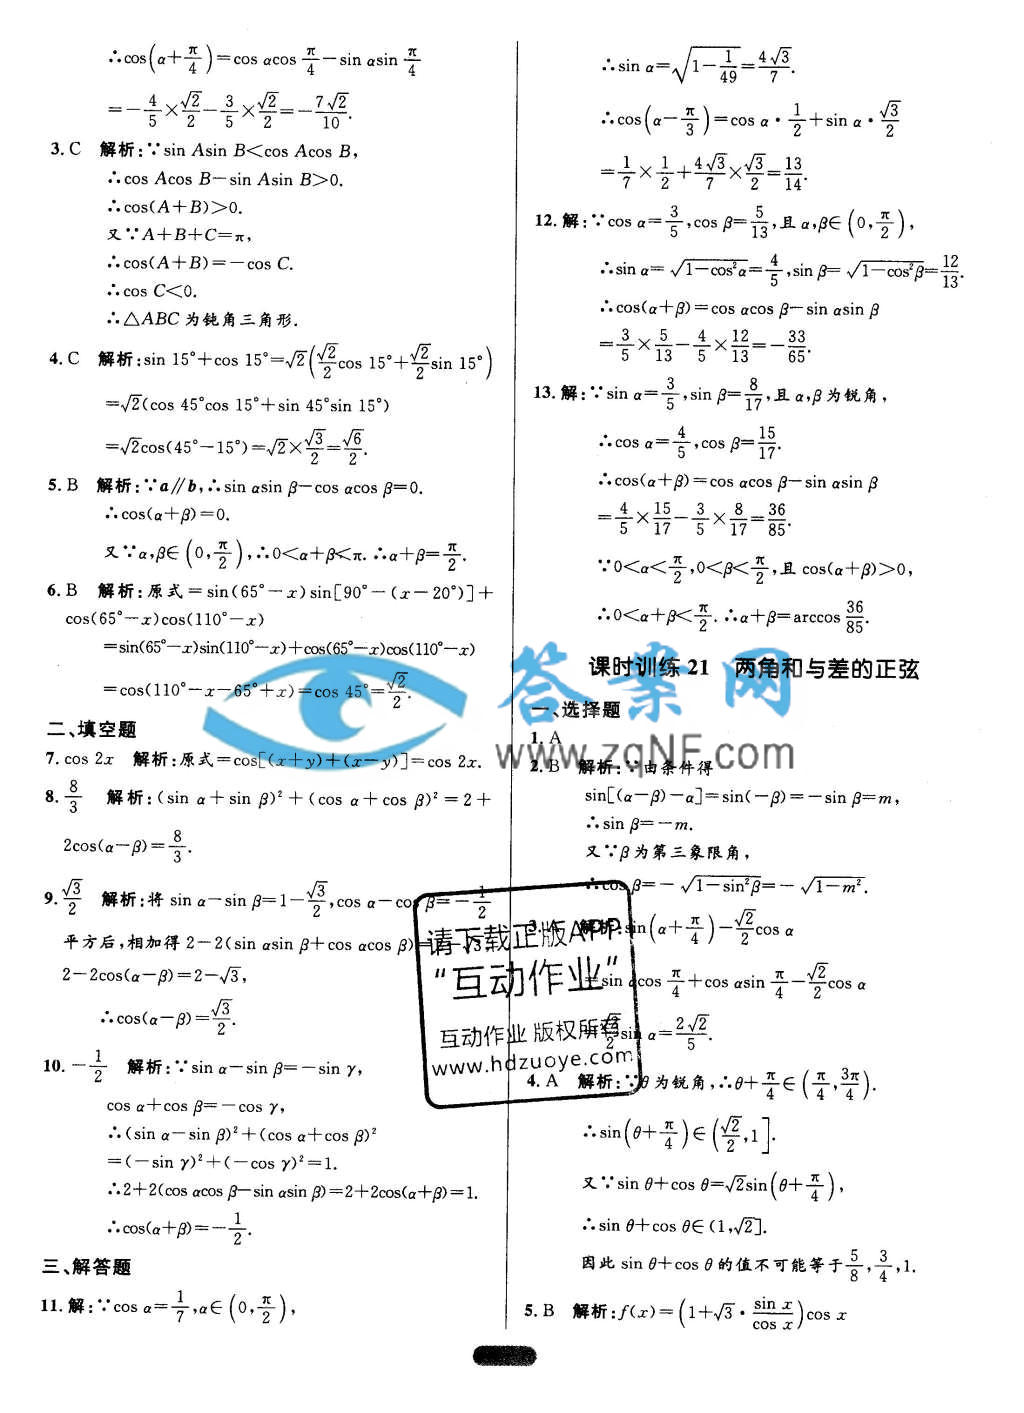 ∴cos(α+π/4)=cos αcos π/4−sin αsin π/4
=−4/5×√2/2−3/5×√2/2=−7√2/10.
3. C 解析:∵sin Asin B<cos Acos B,
∴cos Acos B−sin Asin B>0.
∴cos(A+B)>0.
又∵A+B+C=π,
∴cos(A+B)=−cos C.
∴cos C<0.
∴△ABC为钝角三角形.
4. C 解析:sin 15°+cos 15°=√2(√2/2cos 15°+√2/2sin 15°)
=√2(cos 45°cos 15°+sin 45°sin 15°)
=√2cos(45°−15°)=√2×√3/2=√6/2.
5. B 解析:∵a∥b,∴sin αsin β−cos αcos β=0.
∴cos(α+β)=0.
又∵α,β∈(0,π/2),∴0<α+β<π.∴α+β=π/2.
6. B 解析:原式=sin(65°−x)sin[90°−(x−20°)]+
cos(65°−x)cos(110°−x)
=sin(65°−x)sin(110°−x)+cos(65°−x)cos(110°−x)
=cos(110°−x−65°+x)=cos 45°=√2/2.
二、填空题
7. cos 2x 解析:原式=cos[(x+y)+(x−y)]=cos 2x.
8. 8/3 解析:(sin α+sin β)²+(cos α+cos β)²=2+
2cos(α−β)=8/3.
9. √3/2 解析:将 sin α−sin β=1−√3/2,cos α−cos β=−1/2
平方后,相加得 2−2(sin αsin β+cos αcos β)=2−√3.
2−2cos(α−β)=2−√3,
∴cos(α−β)=√3/2.
10. −1/2 解析:∵sin α−sin β=−sin γ,
cos α+cos β=−cos γ,
∴(sin α−sin β)²+(cos α+cos β)²
=(−sin γ)²+(−cos γ)²=1.
∴2+2(cos αcos β−sin αsin β)=2+2cos(α+β)=1.
∴cos(α+β)=−1/2.
三、解答题
11. 解:∵cos α=1/7,α∈(0,π/2),
∴sin α=√(1−1/49)=4√3/7.
∴cos(α−π/3)=cos α·1/2+sin α·√3/2
=1/7×1/2+4√3/7×√3/2=13/14.
12. 解:∵cos α=3/5,cos β=5/13,且 α,β∈(0,π/2),
∴sin α=√(1−cos²α)=4/5,sin β=√(1−cos²β)=12/13.
∴cos(α+β)=cos αcos β−sin αsin β
=3/5×5/13−4/5×12/13=−33/65.
13. 解:∵sin α=3/5,sin β=8/17,且 α,β为锐角,
∴cos α=4/5,cos β=15/17.
∴cos(α+β)=cos αcos β−sin αsin β
=4/5×15/17−3/5×8/17=36/85.
∵0<α<π/2,0<β<π/2,且 cos(α+β)>0,
∴0<α+β<π/2.∴α+β=arccos 36/85.
课时训练 21 两角和与差的正弦
一、选择题
1. A
2. B 解析:∵由条件得
sin[(α−β)−α]=sin(−β)=−sin β=m,
∴sin β=−m.
又∵β为第三象限角,
∴cos β=−√(1−sin²β)=−√(1−m²).
3. A 解析:sin(α+π/4)−√2/2cos α
=sin αcos π/4+cos αsin π/4−√2/2cos α
=√2/2sin α=2√2/5.
4. A 解析:∵θ为锐角,∴θ+π/4∈(π/4,3π/4).
∴sin(θ+π/4)∈(√2/2,1].
又∵sin θ+cos θ=√2sin(θ+π/4),
∴sin θ+cos θ∈(1,√2].
因此 sin θ+cos θ的值不可能等于5/8,3/4,1.
5. B 解析:f(x)=(1+√3·sin x/cos x)cos x
答案网
www.zqNF.com
请下载正版APP
“互动作业”
互动作业 版权所有
www.hdzuoye.com